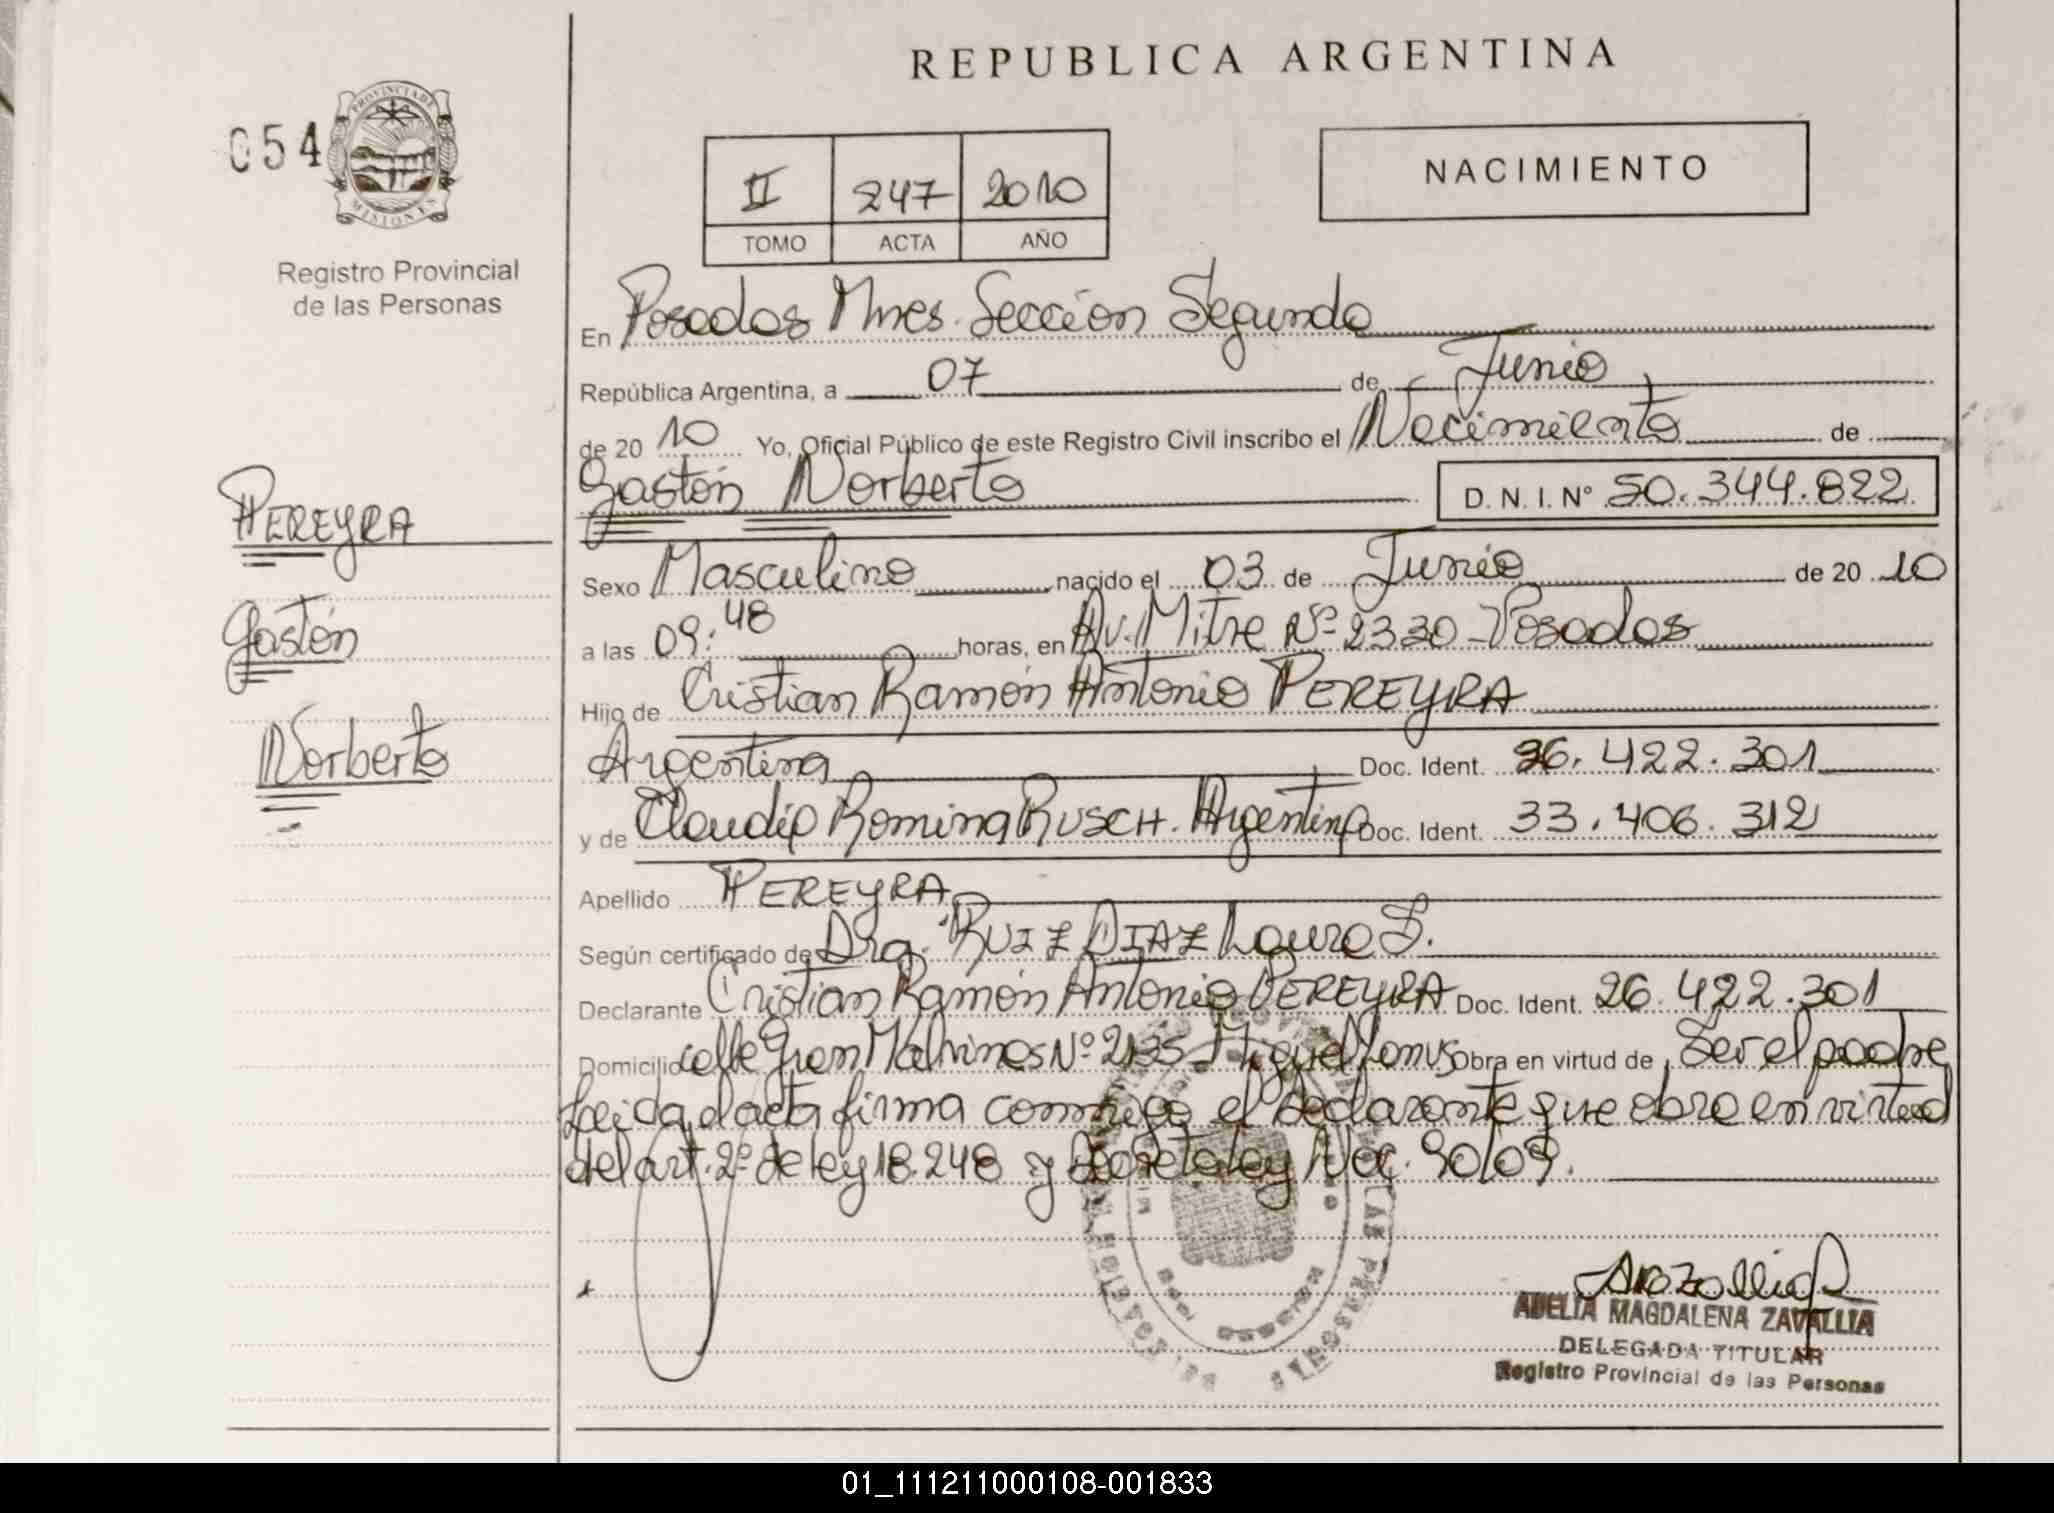 REPUBLICA ARGENTINA
054
PROVINCIA DE
MISIONES
Registro Provincial
de las Personas
II 247 2010
TOMO ACTA AÑO
NACIMIENTO
En Posadas Mnes. Sección Segunda
República Argentina, a 07 de Junio
de 20 10 Yo, Oficial Público de este Registro Civil inscribo el Nacimiento de
Gastón Norberto D. N. I. Nº 50.344.822
PEREYRA
Gastón
Norberto
Sexo Masculino nacido el 03 de Junio de 20 10
a las 09:48 horas, en Av. Mitre Nº 2330 - Posadas
Hijo de Cristian Ramón Antonio PEREYRA
Argentina Doc. Ident. 26.422.301
y de Claudia Romina RUSCH. Argentina Doc. Ident. 33.406.312
Apellido PEREYRA
Según certificado de Dra. RUIZ DIAZ Laura S.
Declarante Cristian Ramón Antonio PEREYRA Doc. Ident. 26.422.301
Domicilio calle Gran Malvinas Nº 2135 Miguel Lanus Obra en virtud de Ser el padre
Leida el acta firma conmigo el declarante que obra en virtud
del art. 2º de ley 18.248 y Decreto ley Nac. 90/09.
ADELIA MAGDALENA ZAVALLIA
DELEGADA TITULAR
Registro Provincial de las Personas
01_111211000108-001833